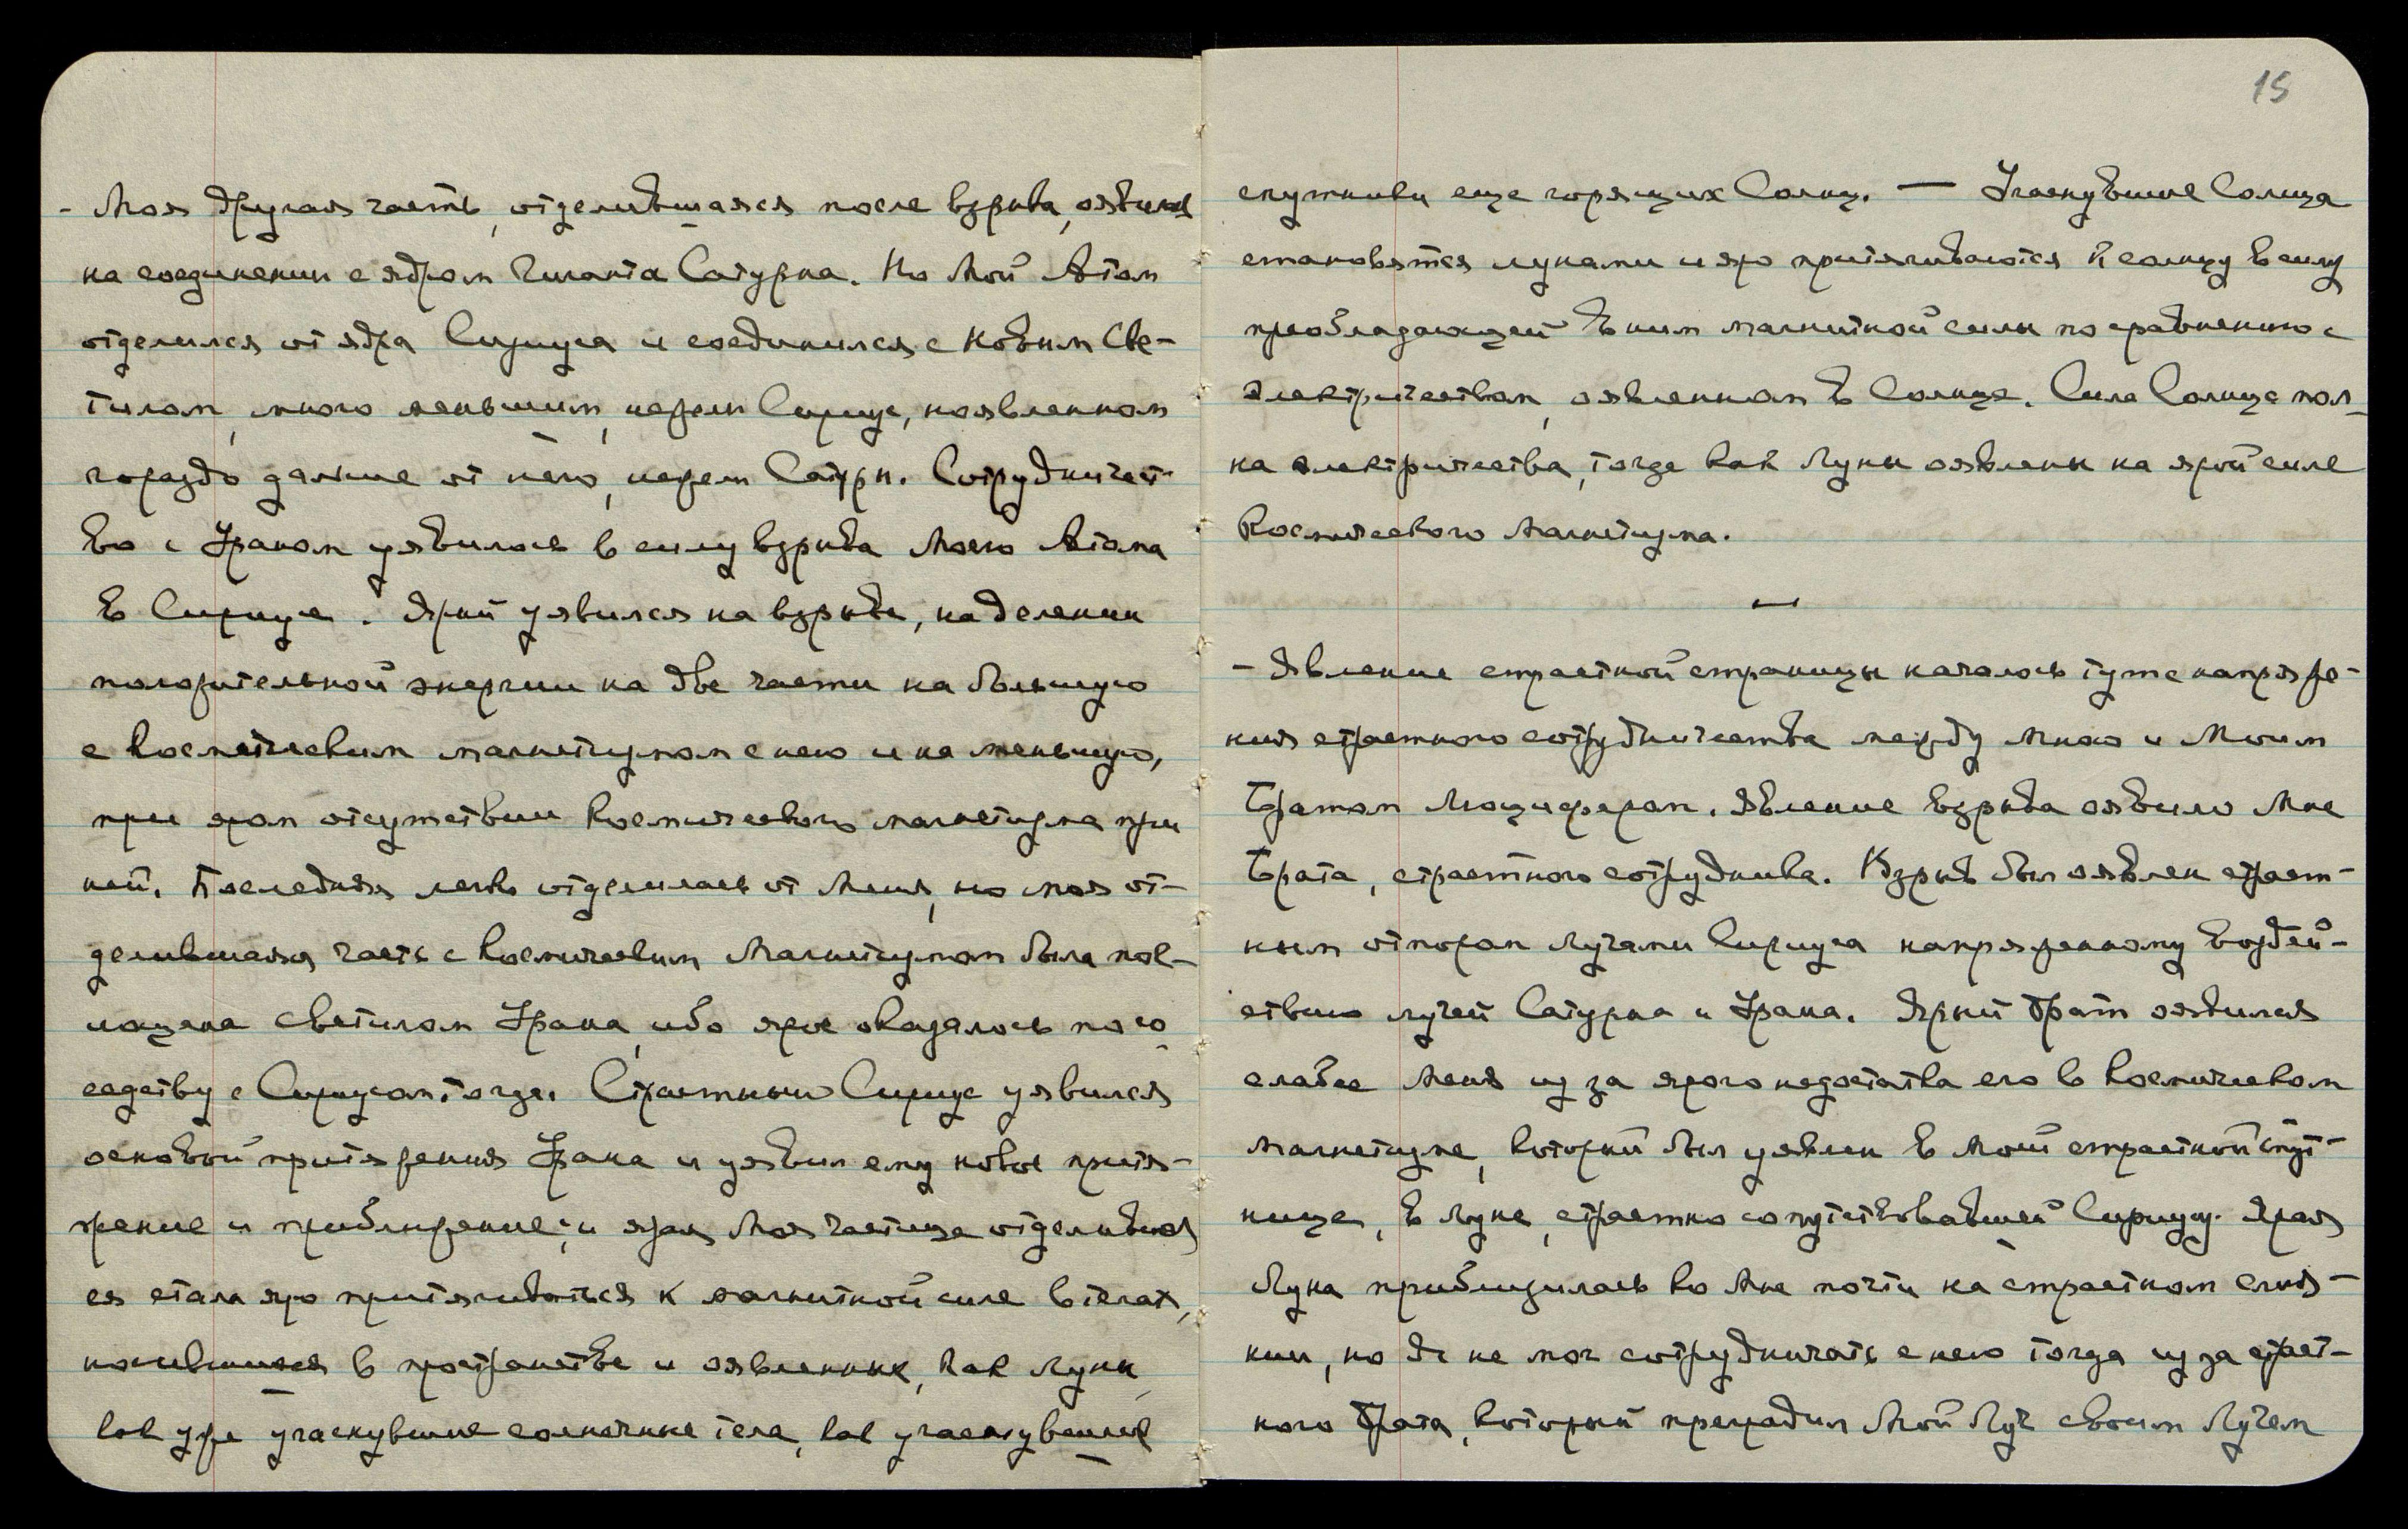 - Моя другая часть, отделившаяся после взрыва, оявилась
на соединении с ядром Гиганта Сатурна. Но Мой Атом
отделился от ядра Сириуса и соединился с новым Све-
тилом, много меньшим, нежели Сириус, и явленном
гораздо дальше от него, нежели Сатурн. Сотрудничест-
во с Ураном уявилось в силу взрыва Моего Атома
в Сириусе. Ярый уявился на взрыве, на делении
положительной энергии на две части на большую
с космическим магнетизмом с нею и на меньшую,
при яром отсутствии космического магнетизма при
ней. Последняя легко отделилась от Меня, но моя от-
делившаяся часть с космическим Магнетизмом была погло-
щена светилом Урана, ибо ярое оказалось по со-
седству с Сириусом тогда. Страстный Сириус уявился
основой притяжения Урана и уявил ему новое притя-
жение и приближение; и ярая Моя частица отделившая
ся стала яро притягиваться к магнитной силе в телах,
носившихся в пространстве и оявленных, как Луны,
как уже угаснувшие солнечные тела, как угаснувшие
15
спутники еще горящих Солнц. — Угаснувшие Солнца
становятся лунами и яро притягиваются к солнцу в силу
преобладающей в них магнитной силы по сравнению с
электричеством, оявленном в Солнце. Сила Солнца пол-
на электричества, тогда как Луны оявлены на ярой силе
Космического Магнетизма.
—
- Явление страстной страницы началось тут с напряже-
ния страстного сотрудничества между Мною и Моим
Братом Люцифером. Явление взрыва оявило Мне
Брата, страстного сотрудника. Взрыв был оявлен страст-
ным отпором лучами Сириуса напряженному воздей-
ствию лучей Сатурна и Урана. Ярый Брат оявился
слабее Меня из за ярого недостатка его в космическом
магнетизме, который был уявлен в Моей страстной спут-
нице, в Луне, страстно сопутствовавшей Сириусу. Ярая
Луна приблизилась ко Мне почти на страстном слия-
нии, но Я не мог сотрудничать с нею тогда из за страст-
ного Брата, который преградил Мой Луч своим Лучем